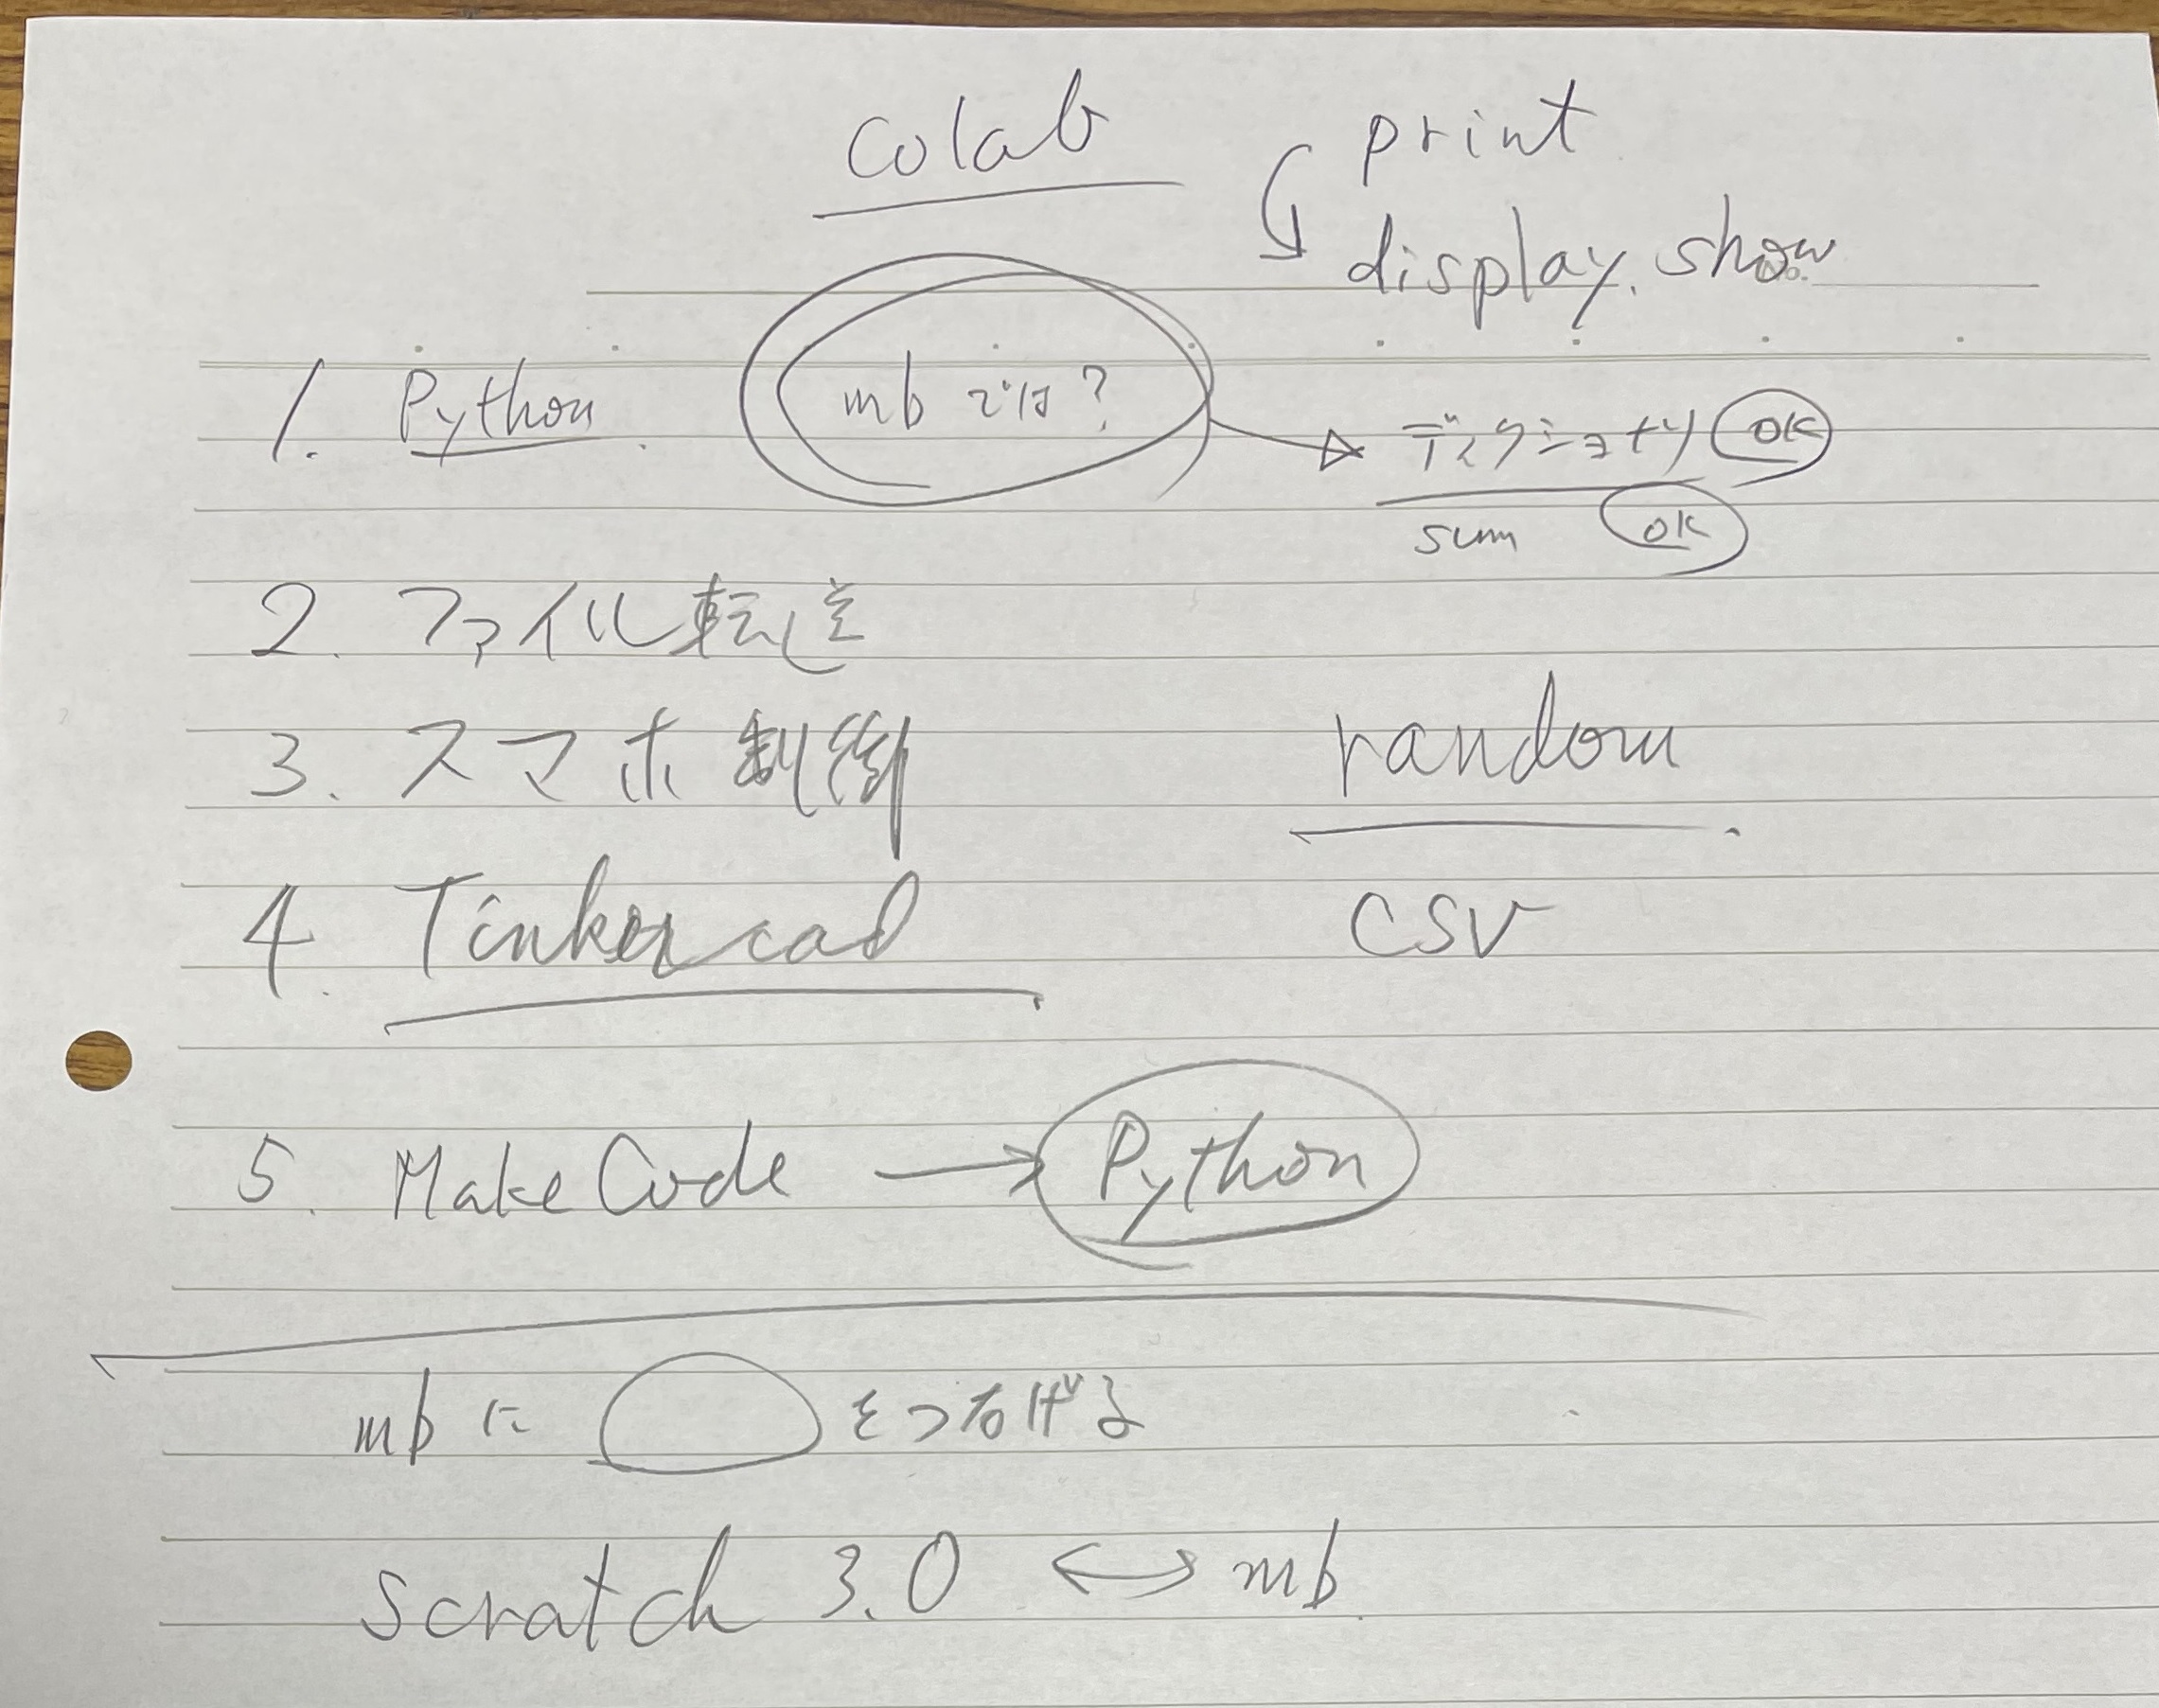 colab print
display.show
No.
1. Python mbでは? ディクショナリ OK
sum OK
2. ファイル転送
3. スマホ制御 random
4. Tinkercad CSV
5. MakeCode → Python
mbに をつなげる
scratch 3.0 ↔ mb